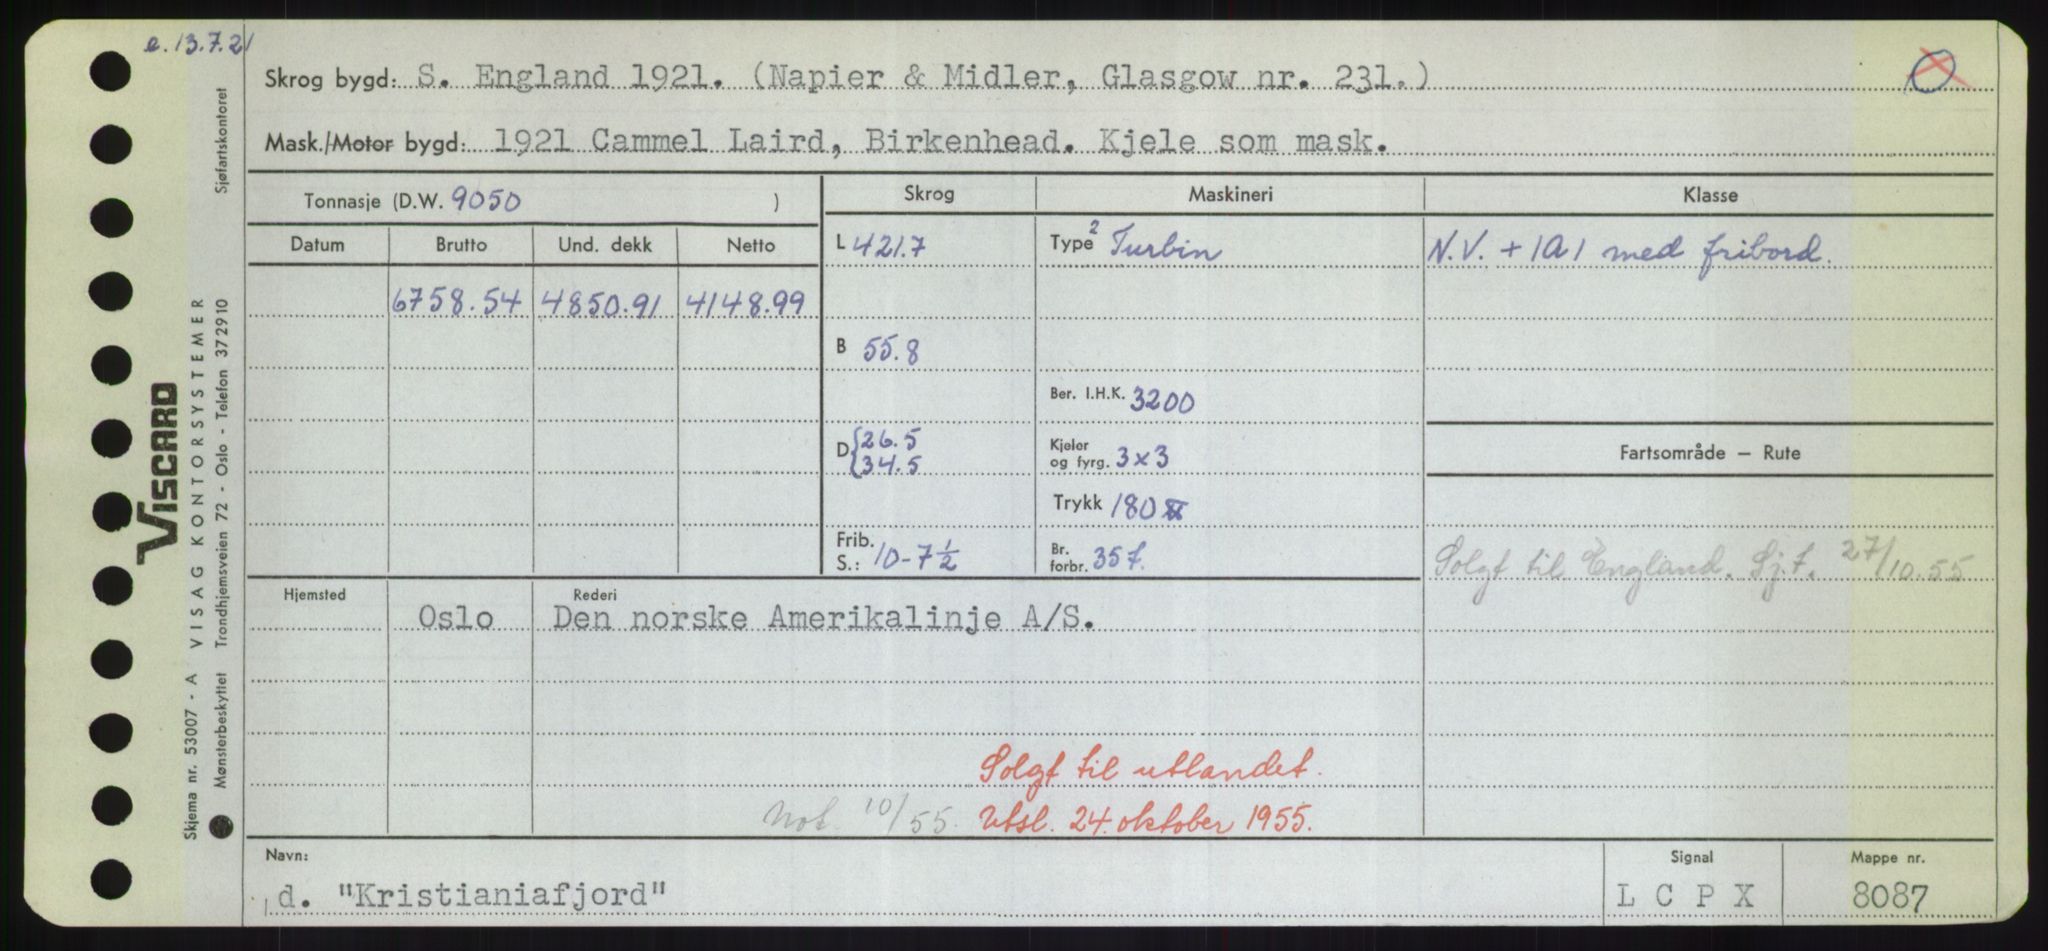 e. 13.7.21
Skrog bygd: S. England 1921. (Napier & Midler, Glasgow nr. 231.)
Mask./Motor bygd: 1921 Cammel Laird, Birkenhead. Kjele som mask.
Tonnasje (D.W. 9050 )
Skrog Maskineri Klasse
Datum Brutto Und. dekk Netto
L 421.7 Type 2 Turbin N.V. + 1A1 med fribord.
6758.54 4850.91 4148.99
B 55.8
Ber. I.H.K. 3200
D { 26.5
34.5
Kjeler
og fyrg. 3x3
Fartsområde — Rute
Trykk 180
Frib.
S.: 10-7½
Br.
forbr. 35 t.
Solgt til England. Sj.f. 27/10.55
Hjemsted Rederi
Oslo Den norske Amerikalinje A/S.
Solgt til utlandet.
Not. 10/55. Utsl. 24. oktober 1955.
Navn: Signal Mappe nr.
d. "Kristianiafjord" L C P X 8087
Skjema nr. 53007 - A VISAG KONTORSYSTEMER
Mønsterbeskyttet Trondhjemsveien 72 - Oslo - Telefon 372910
Sjøfartskontoret
VISCARD